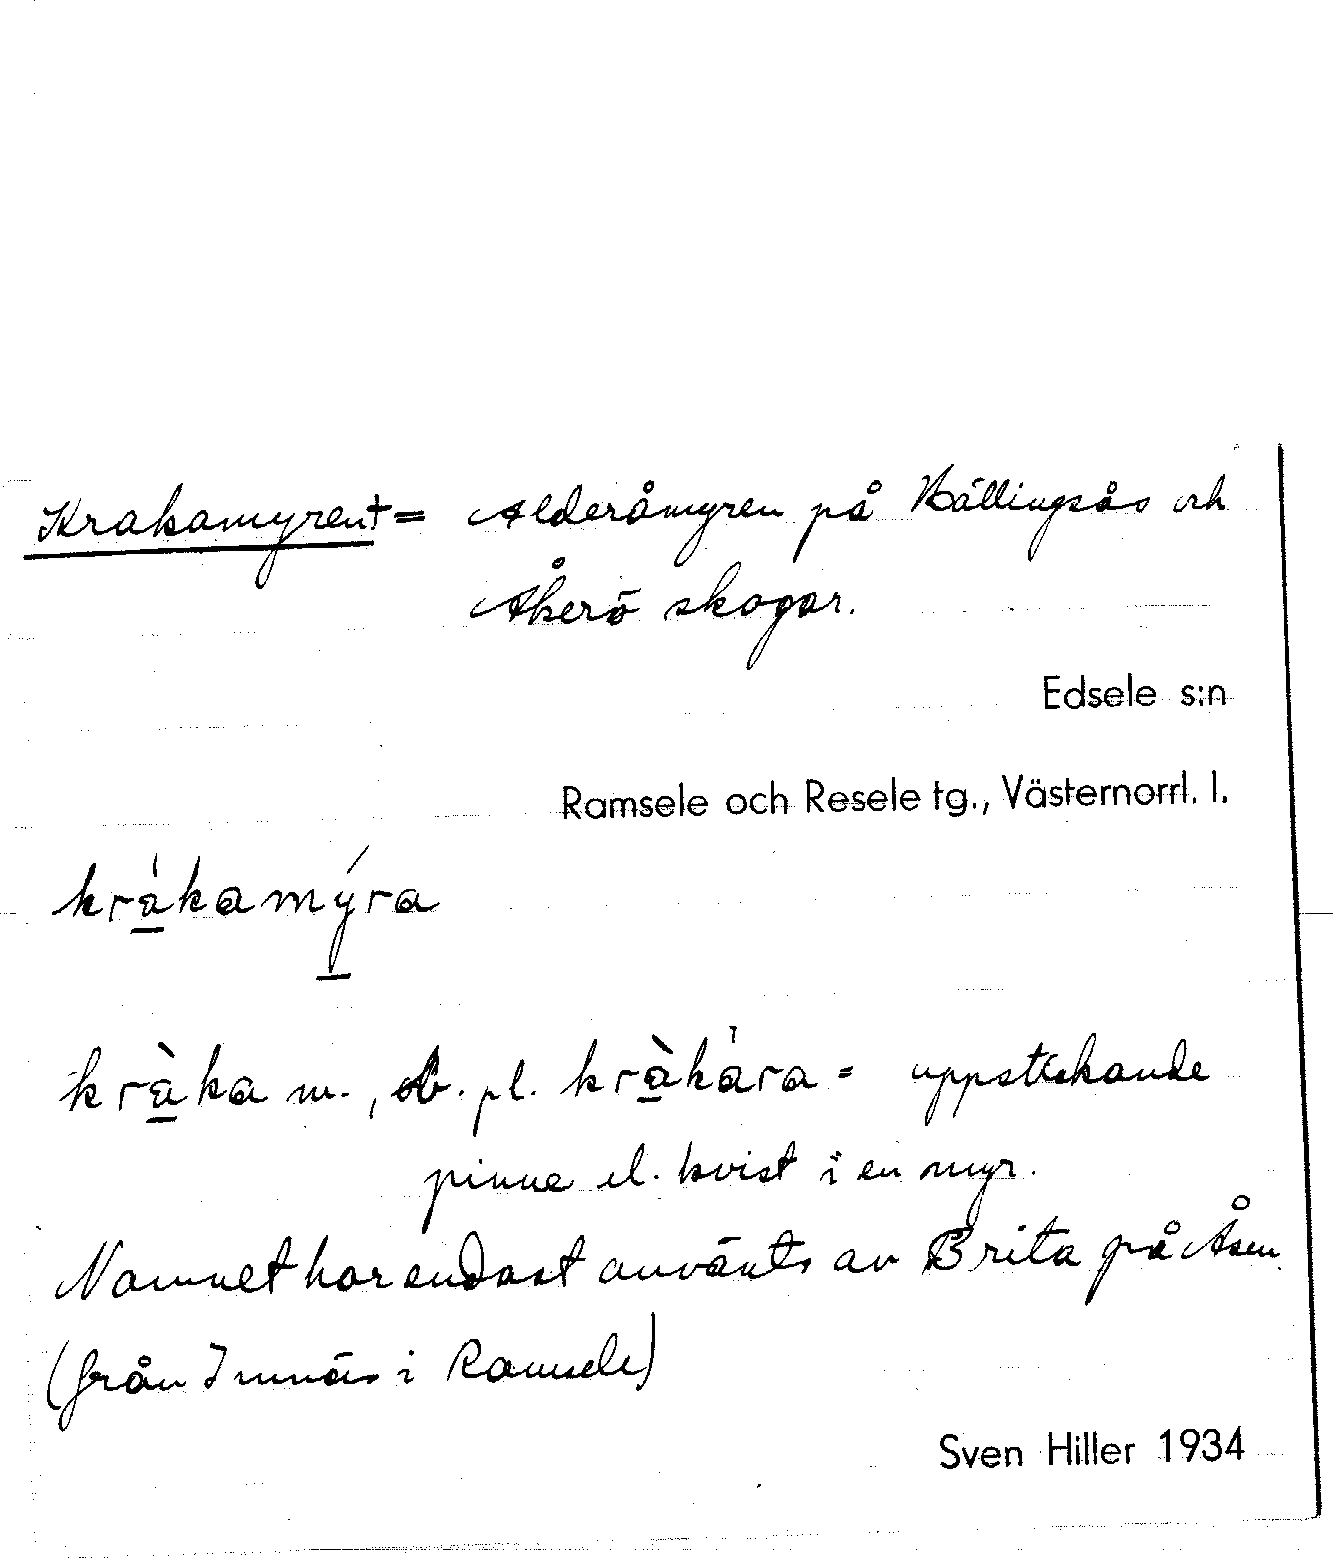 Krakamyren† = Alderåmyren på Källingsås och
Åkerö skogar.
Edsele s:n
Ramsele och Resele tg., Västernorrl. l.
kràkamýra
kràka m., ob. pl. kràkára = uppstickande
pinne el. kvist i en myr.
Namnet har endast använts av Brita på Åsen
(från Imnäs i Ramsele)
Sven Hiller 1934